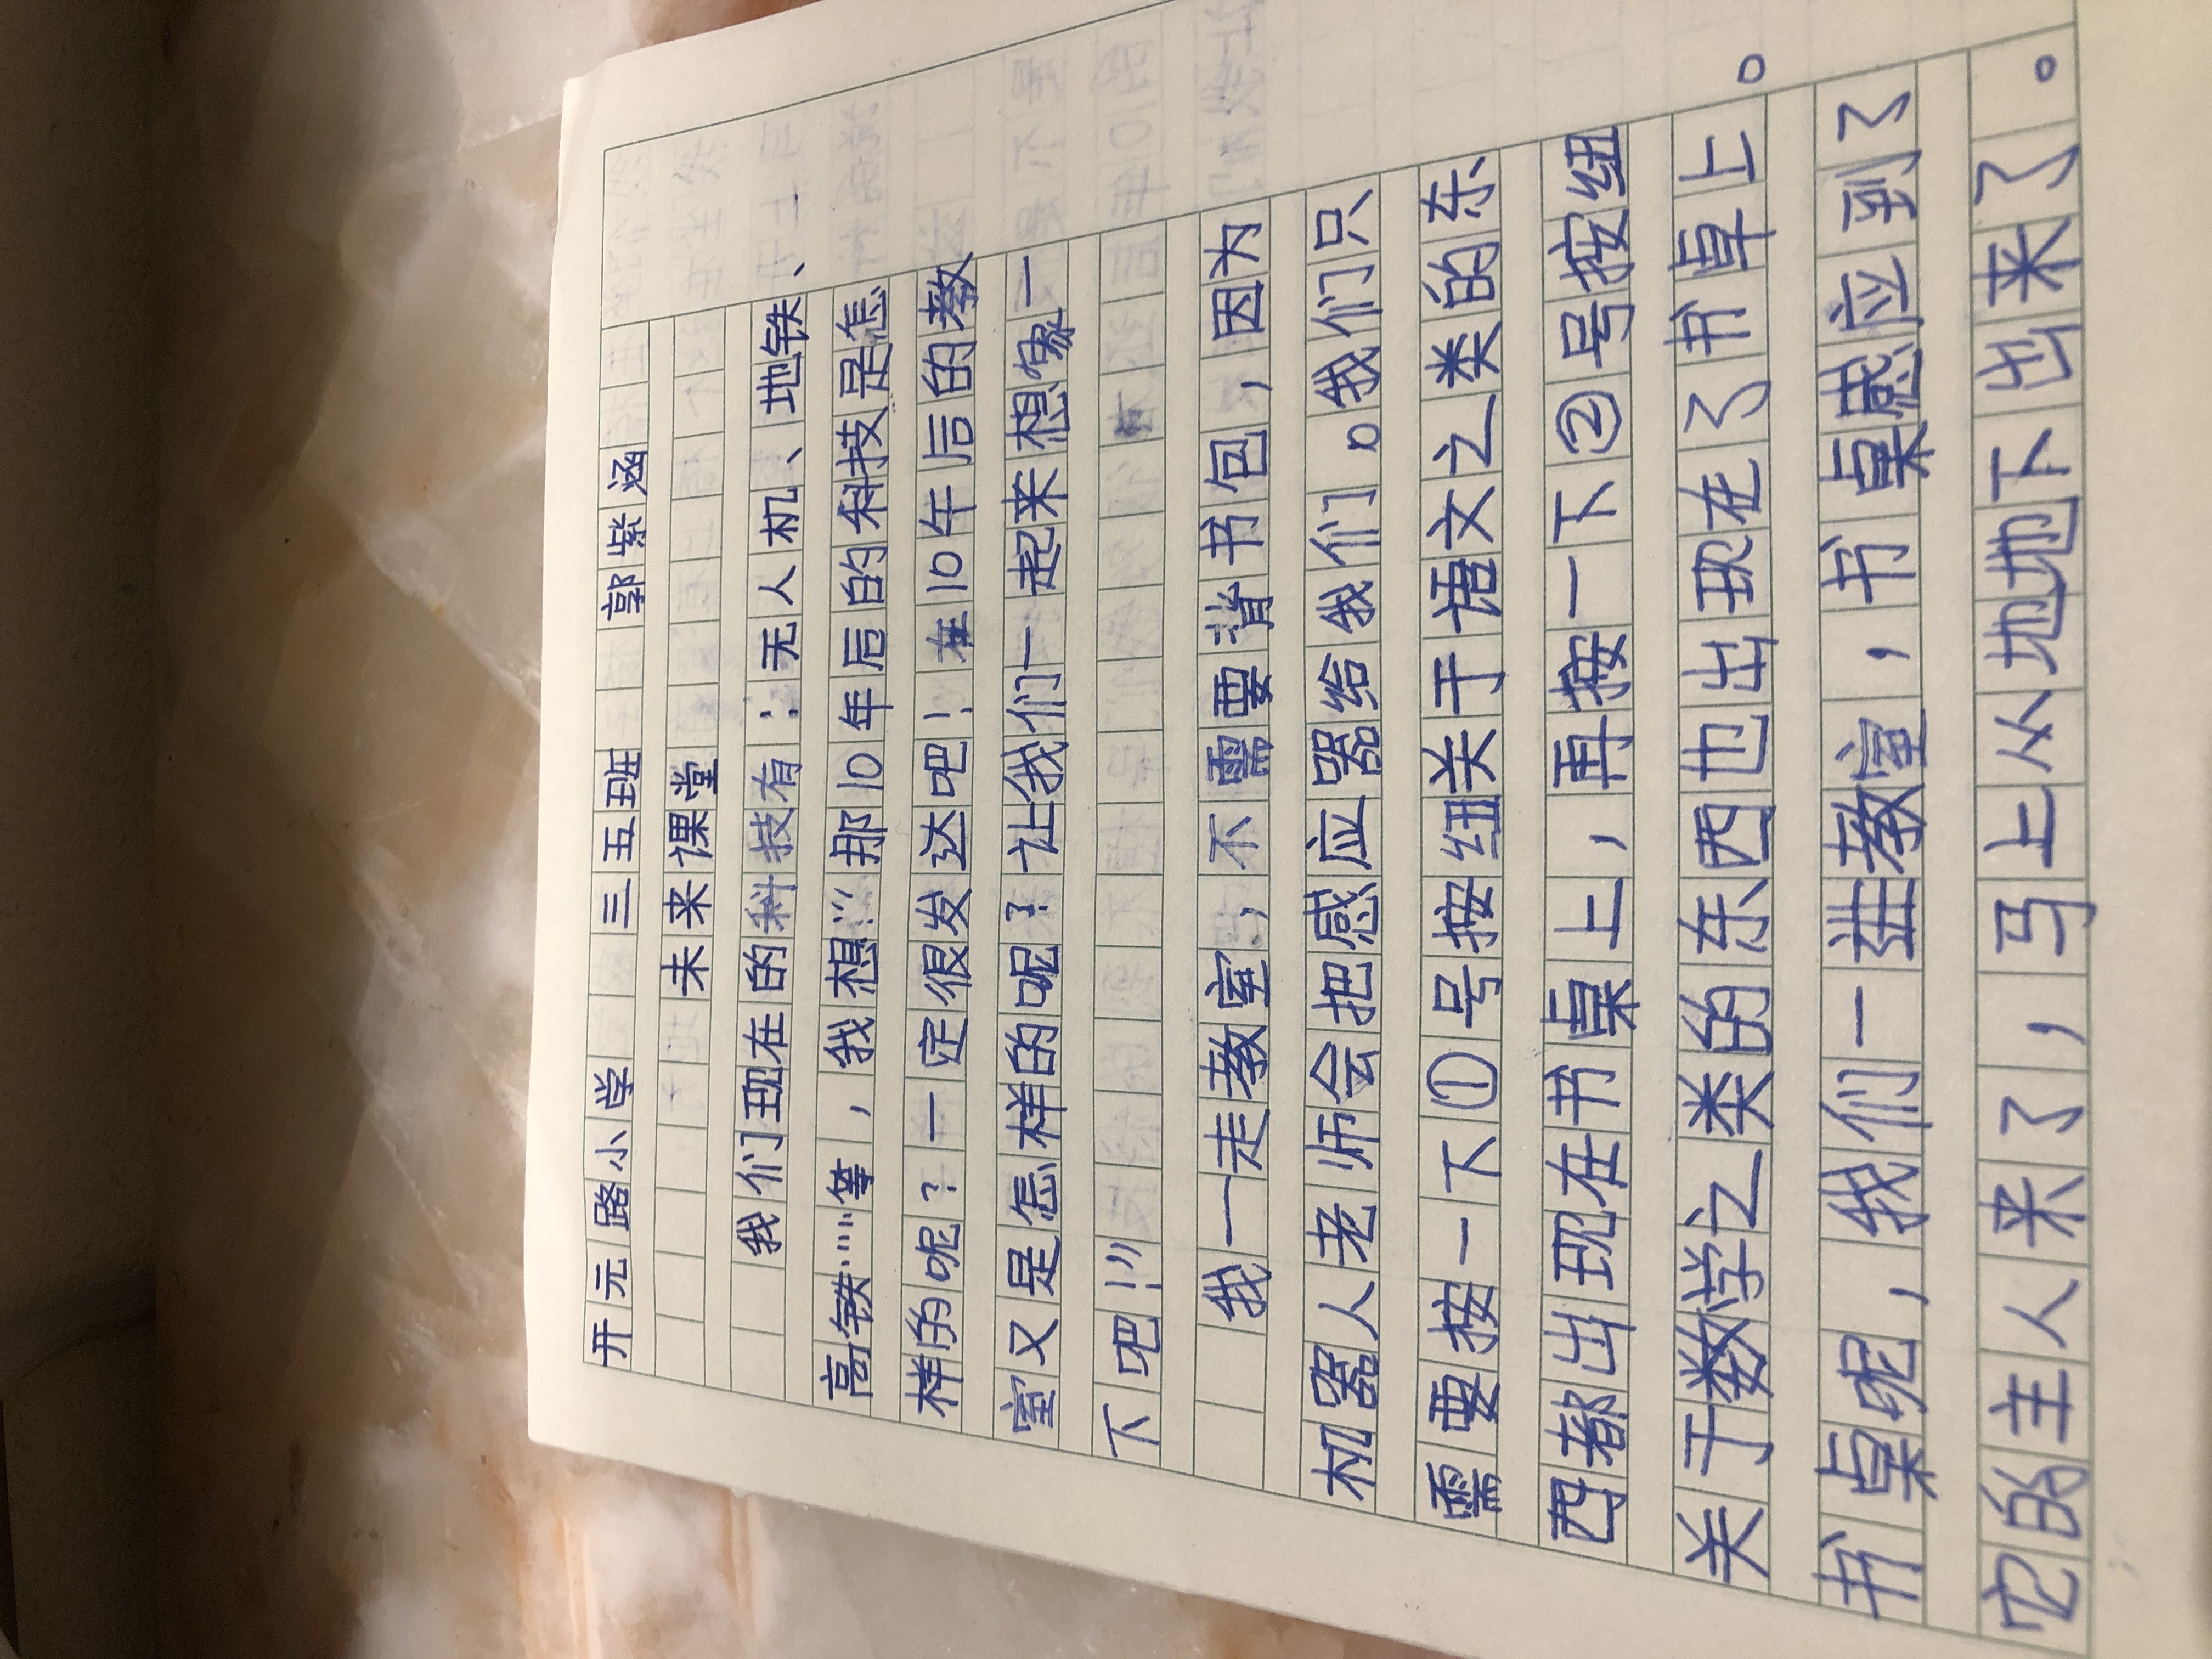 开元路小学 三五班 郭紫涵
未来课堂
我们现在的科技有：无人机、地铁、
高铁……等，我想…”那10年后的科技是怎
样的呢？一定很发达吧！在10年后的教
室又是怎样的呢？让我们一起来想象一
下吧！”
我一走教室，不需要背书包，因为
机器人老师会把感应器给我们。我们只
需要按一下①号按纽关于语文之类的东
西都出现在书桌上，再按一下②号按纽
关于数学之类的东西也出现在了书卓上。
书桌呢，我们一进教室，书桌感应到了
它的主人来了，马上从地地下出来了。